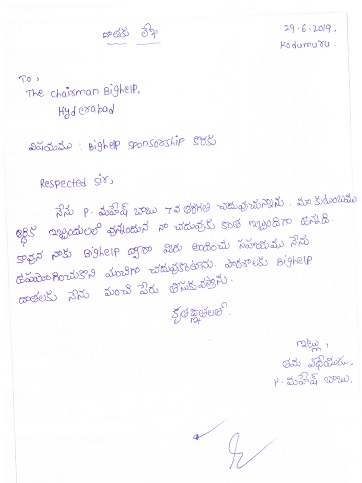 దాతకు లేఖ
29-6-2019,
Kodumuru.
To,
The Chairman Bighelp,
Hyderabad
విషయము : Bighelp Sponsorship కొరకు
Respected Sir,
నేను P. మహేష్ బాబు 7వ తరగతి చదువుచున్నాను. మా కుటుంబము
ఆర్థిక ఇబ్బందులలో వున్నందున నా చదువుకు కొంత ఇబ్బందిగా ఉన్నది.
కావున నాకు Bighelp ద్వారా మీరు అందించు సహాయము నేను
ఉపయోగించుకొని మంచిగా చదువుకుంటాను. పాఠశాలకు Bighelp
దాతలకు నేను మంచి పేరు తీసుకువస్తాను.
కృతజ్ఞతలతో.
ఇట్లు,
తమ విధేయుడు.
P. మహేష్ బాబు.